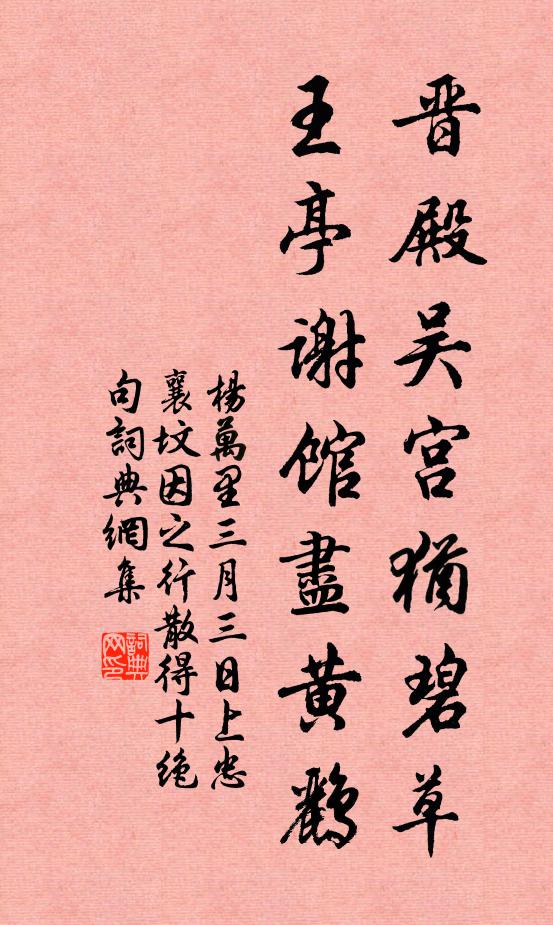 晋殿吴宫猶碧草
王亭謝馆盡黄鸝
楊萬里三月三日上忠
襄坟因之行散得十绝
句詞典網集
詞典网印